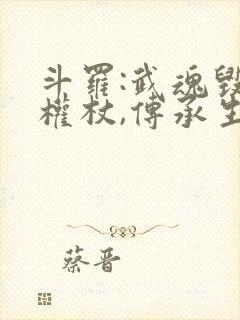 斗羅:武魂毀
權杖,傳承生
蔡晋